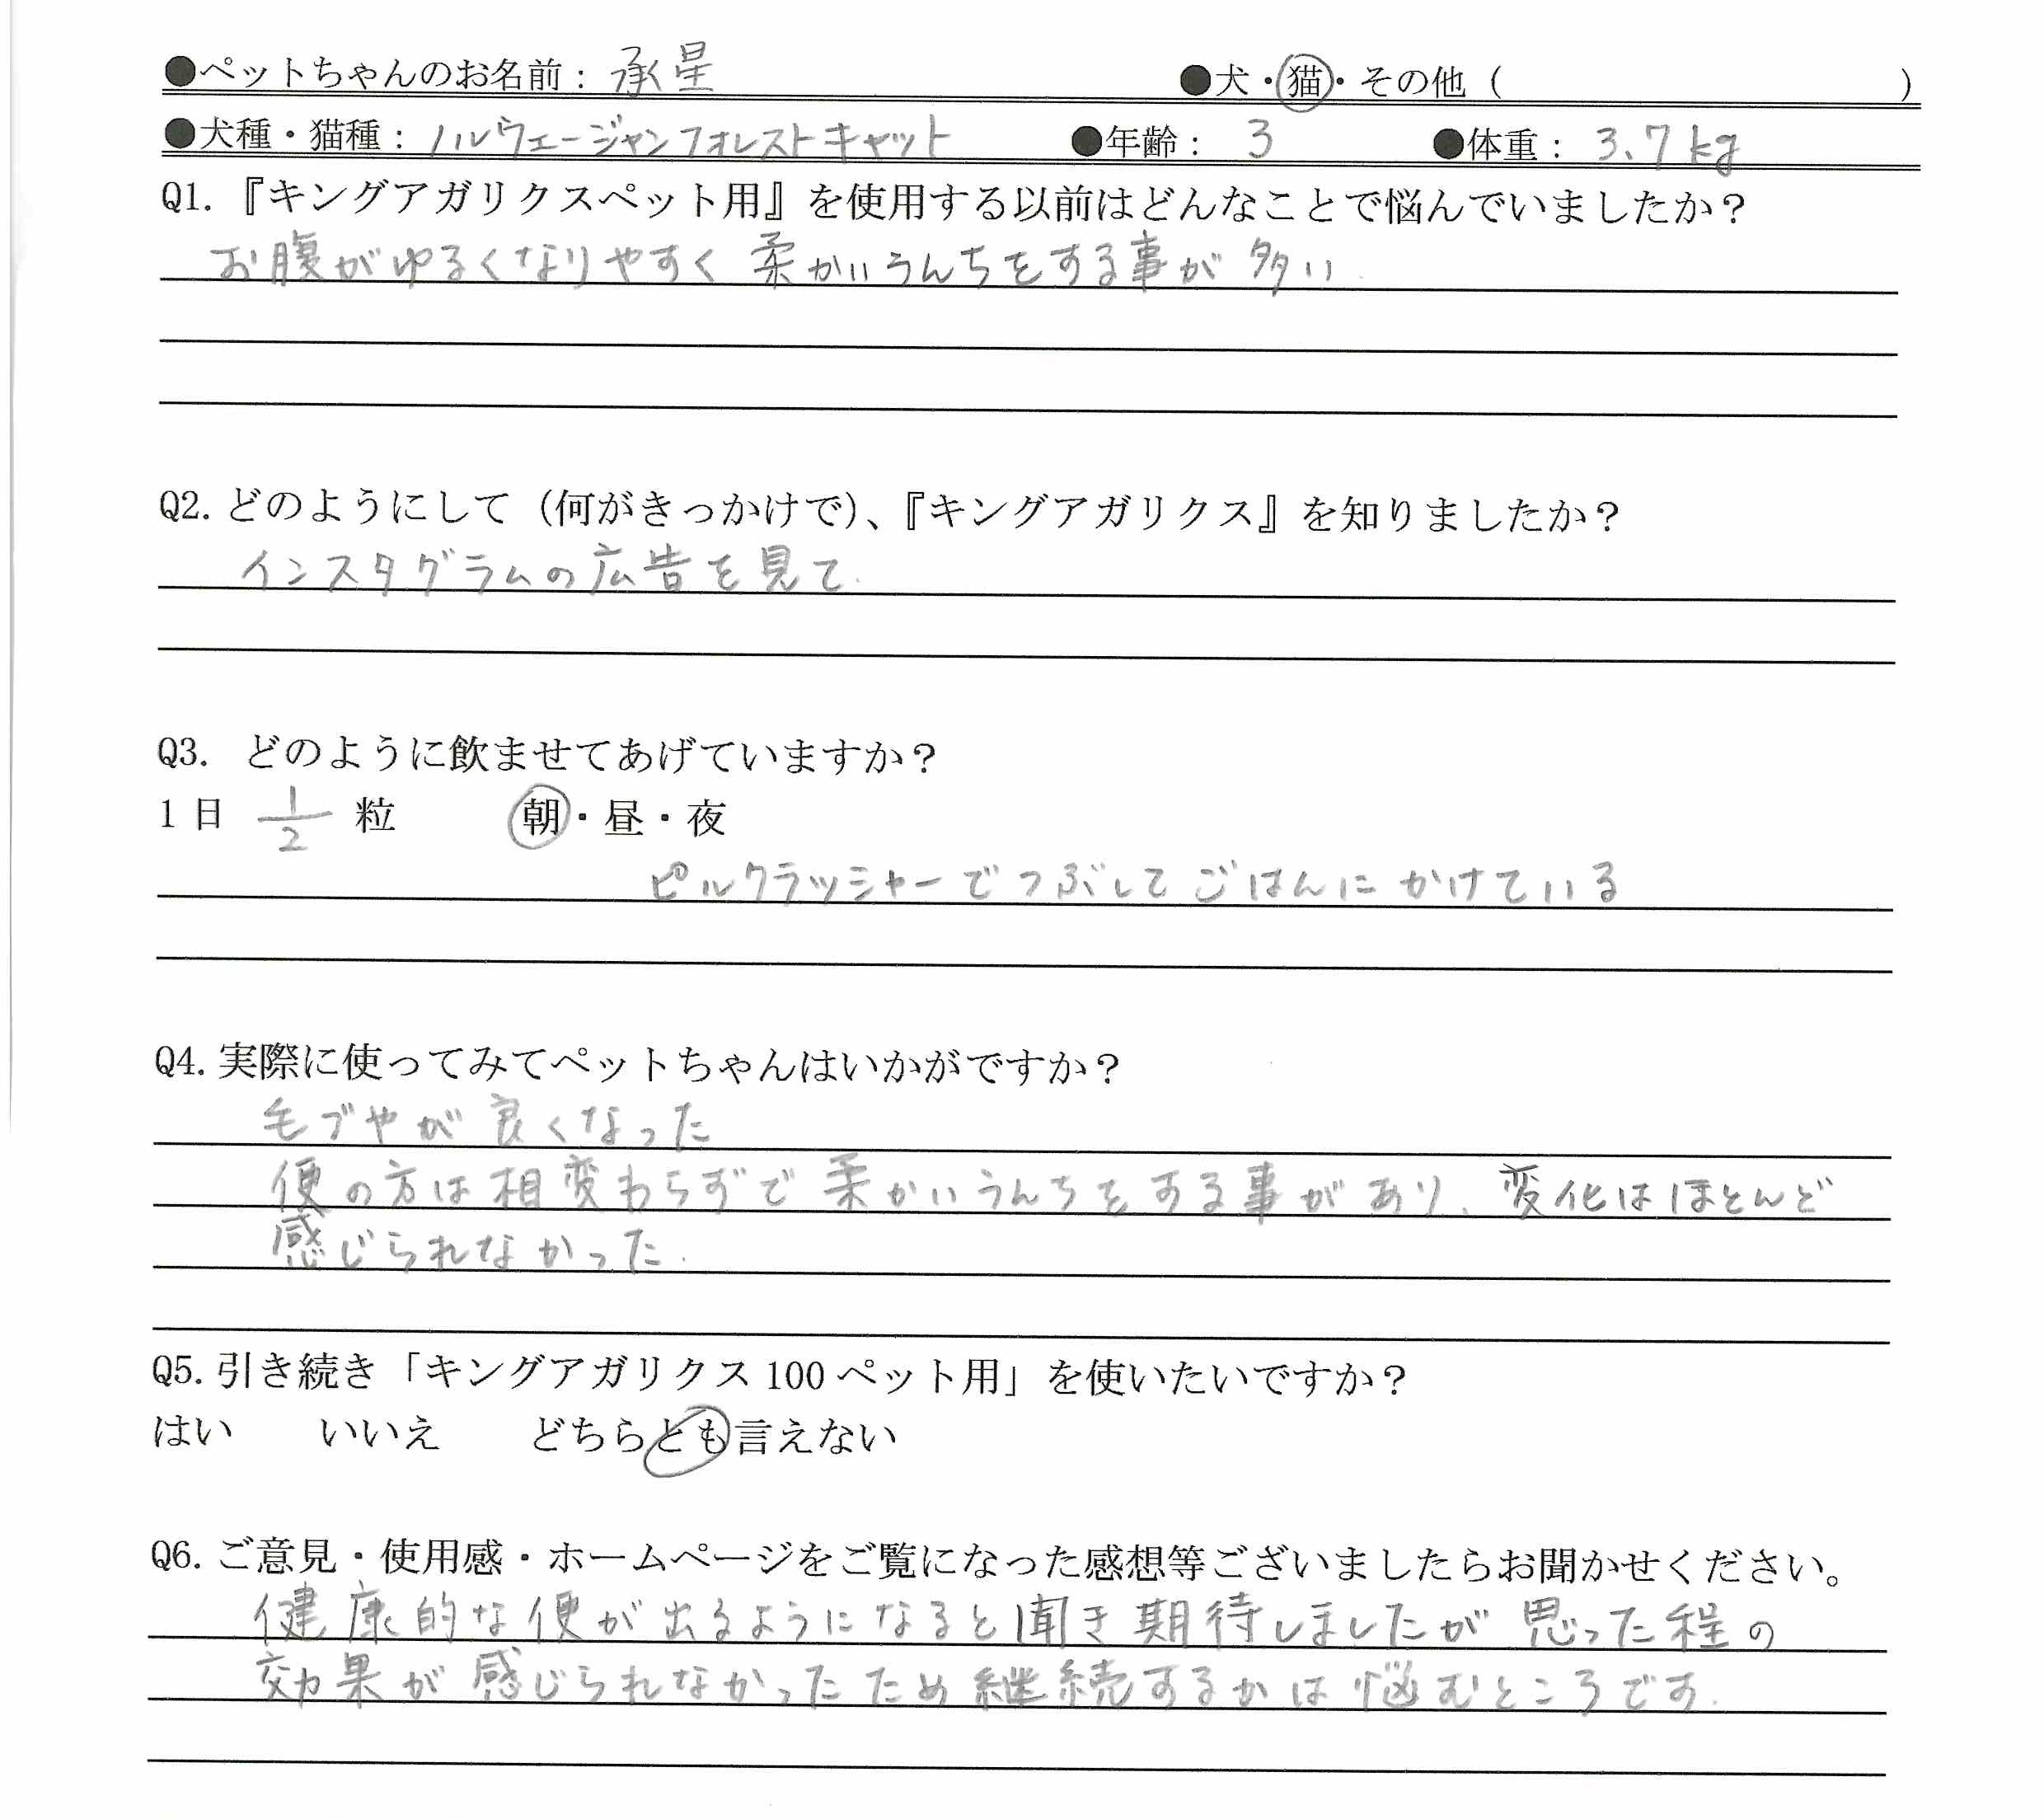 ●ペットちゃんのお名前：承星 ●犬・猫・その他（ ）
●犬種・猫種：ノルウェージャンフォレストキャット ●年齢：3 ●体重：3.7kg
Q1.『キングアガリクスペット用』を使用する以前はどんなことで悩んでいましたか？
お腹がゆるくなりやすく柔かいうんちをする事が多い.
Q2.どのようにして（何がきっかけで）、『キングアガリクス』を知りましたか？
インスタグラムの広告を見て.
Q3. どのように飲ませてあげていますか？
1日 1/2 粒 朝・昼・夜
ピルクラッシャーでつぶしてごはんにかけている
Q4.実際に使ってみてペットちゃんはいかがですか？
毛ヅやが良くなった
便の方は相変わらずで柔かいうんちをする事があり、変化はほとんど
感じられなかった.
Q5.引き続き「キングアガリクス100ペット用」を使いたいですか？
はい いいえ どちらとも言えない
Q6.ご意見・使用感・ホームページをご覧になった感想等ございましたらお聞かせください。
健康的な便が出るようになると聞き期待しましたが思った程の
効果が感じられなかったため継続するかは悩むところです.